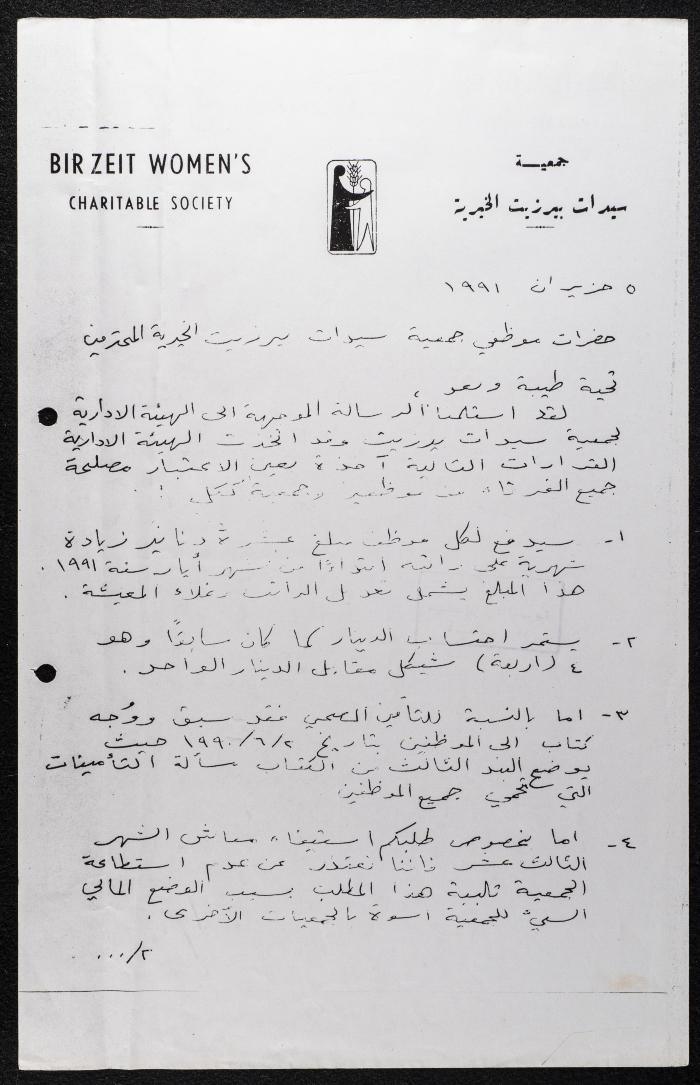 BIR ZEIT WOMEN'S
CHARITABLE SOCIETY
جمعية
سيدات بيرزيت الخيرية
٥ حزيران ١٩٩١
حضرات موظفي جمعية سيدات بيرزيت الخيرية المحترمين
تحية طيبة وبعد ،
لقد استلمنا الرسالة الموجهة الى الهيئة الادارية
لجمعية سيدات بيرزيت وقد اتخذت الهيئة الادارية
القرارات التالية آخذة بعين الاعتبار مصلحة
جميع الفرقاء من موظفين وجمعية ككل :
١- سيدفع لكل موظف مبلغ عشرة دنانير زيادة
شهرية على راتبه ابتداءًا من شهر أيار سنة ١٩٩١ .
هذا المبلغ يشمل تعديل الراتب وغلاء المعيشة .
٢- يستمر احتساب الدينار كما كان سابقًا وهو
٤ (اربعة) شيكل مقابل الدينار الواحد .
٣- اما بالنسبة للتأمين الصحي فقد سبق ووُجه
كتاب الى الموظفين بتاريخ ١٩٩٠/٦/٢ حيث
يوضع البند الثالث من الكتاب مسألة التأمينات
التي تحمي جميع الموظفين
٤- اما بخصوص طلبكم استيفاء معاش الشهر
الثالث عشر فاننا نعتذر عن عدم استطاعة
الجمعية تلبية هذا المطلب بسبب الوضع المالي
السيء للجمعية اسوة بالجمعيات الأخرى .
٢/...